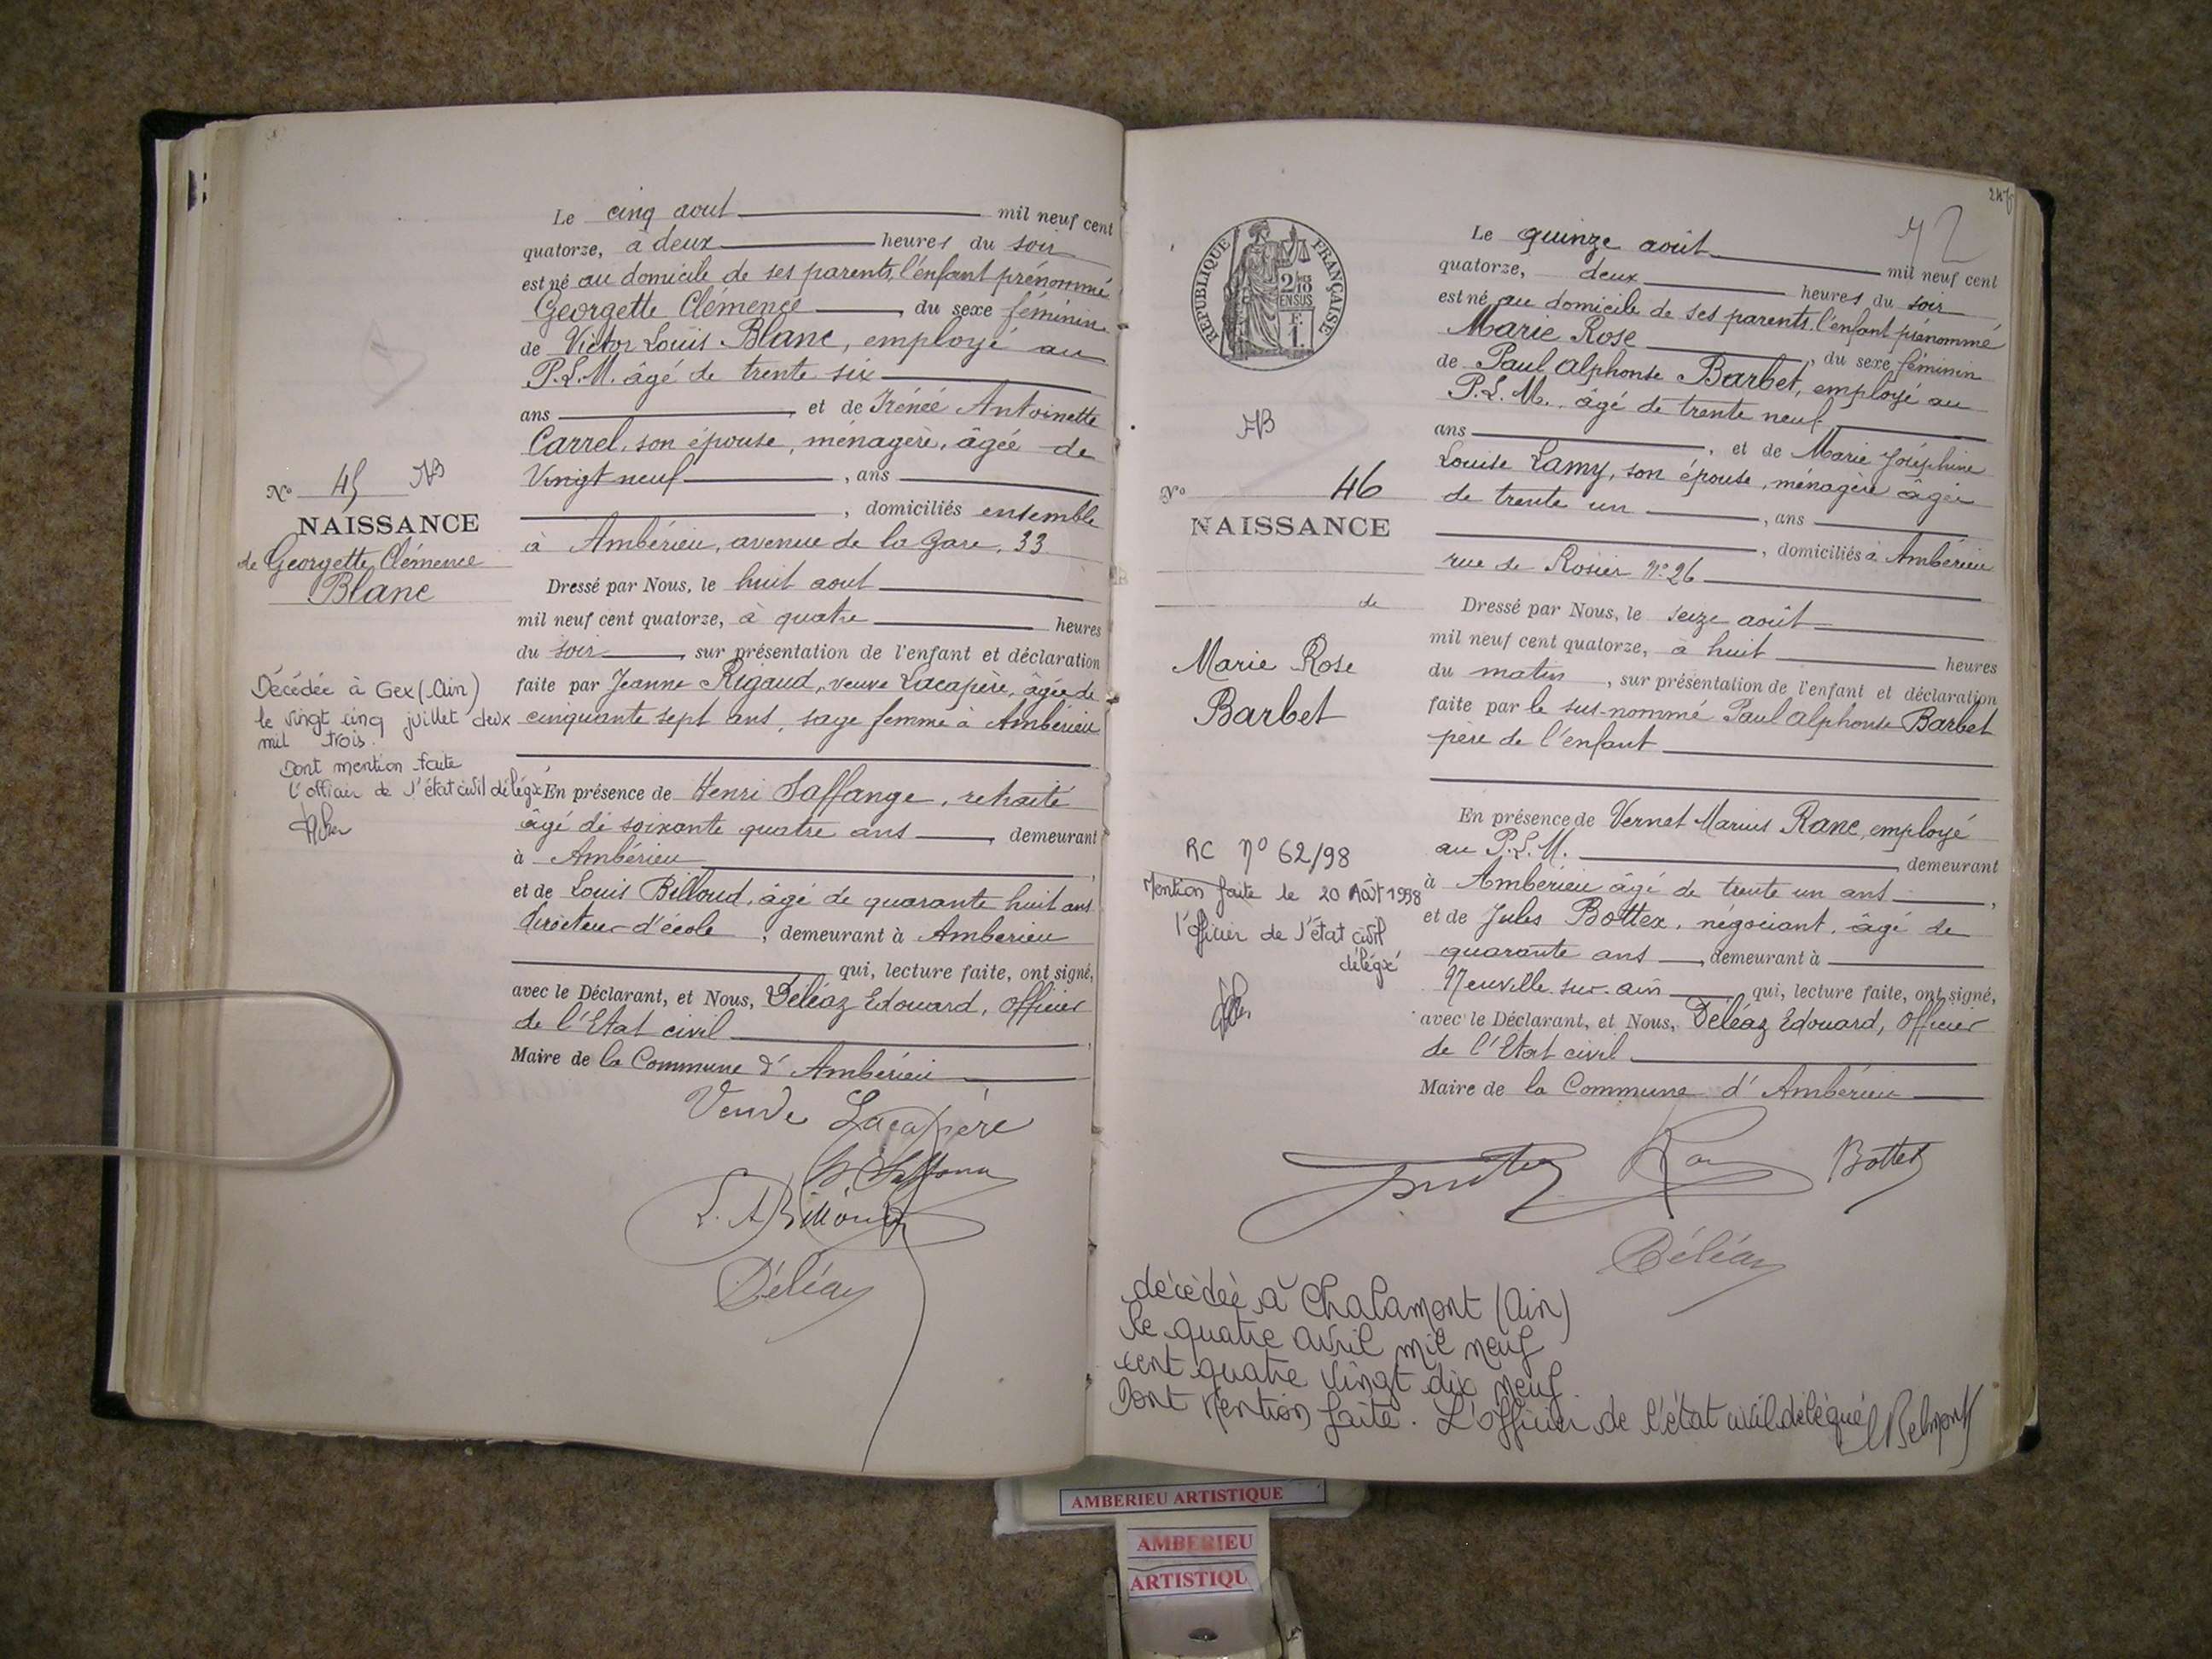 Le cinq aout mil neuf cent
quatorze, à deux heures du soir
est né au domicile de ses parents, l'enfant prénommé
Georgette Clémence , du sexe féminin
de Victor Louis Blanc, employé au
P.L.M. âgé de trente six
ans , et de Irénée Antoinette
Carrel, son épouse, ménagère, âgée de
Vingt neuf , ans
, domiciliés ensemble
à Ambérieu, avenue de la Gare, 33
Dressé par Nous, le huit aout
mil neuf cent quatorze, à quatre heures
du soir , sur présentation de l'enfant et déclaration
faite par Jeanne Rigaud, veuve Lacapère, âgée de
cinquante sept ans, sage femme à Ambérieu
En présence de Henri Saffange, retraité
âgé de soixante quatre ans , demeurant
à Ambérieu ,
et de Louis Billoud, âgé de quarante huit ans
directeur d'école , demeurant à Ambérieu
qui, lecture faite, ont signé,
avec le Déclarant, et Nous, Déléaz Edouard, Officier
de l'Etat civil ,
Maire de la Commune d'Ambérieu
Veuve Lacapère
L. A Billoud
Déléaz
No 45 AB
NAISSANCE
de Georgette Clémence
Blanc
Décédée à Gex (Ain)
le vingt cinq juillet deux
mil trois.
Dont mention faite
l'officier de l'état civil délégué
REPUBLIQUE FRANÇAISE
AB
No 46
NAISSANCE
de
Marie Rose
Barbet
RC n° 62/98
Mention faite le 20 Août 1998
l'officier de l'état civil
délégué
72
Le quinze août mil neuf cent
quatorze, deux heures du soir
est né au domicile de ses parents, l'enfant prénommé
Marie Rose , du sexe féminin
de Paul Alphonse Barbet, employé au
P.L.M., âgé de trente neuf
ans , et de Marie Joséphine
Louise Lamy, son épouse, ménagère âgée
de trente un , ans
, domiciliés à Ambérieu
rue de Rosier n° 26
Dressé par Nous, le seize août
mil neuf cent quatorze, à huit heures
du matin , sur présentation de l'enfant et déclaration
faite par le sus-nommé Paul Alphonse Barbet
père de l'enfant
En présence de Vernet Marius Ranc, employé
au P.L.M. demeurant
à Ambérieu âgé de trente un ans ,
et de Jules Bottex, négociant, âgé de
quarante ans , demeurant à
Neuville sur ain qui, lecture faite, ont signé,
avec le Déclarant, et Nous, Déléaz Edouard, Officier
de l'Etat civil
Maire de la Commune d'Ambérieu
Bottex
Déléaz
décédée à Chalamont (Ain)
le quatre avril mil neuf
cent quatre vingt dix neuf.
Dont mention faite. L'officier de l'état civil délégué Belmont
AMBERIEU ARTISTIQUE
AMBERIEU
ARTISTIQU